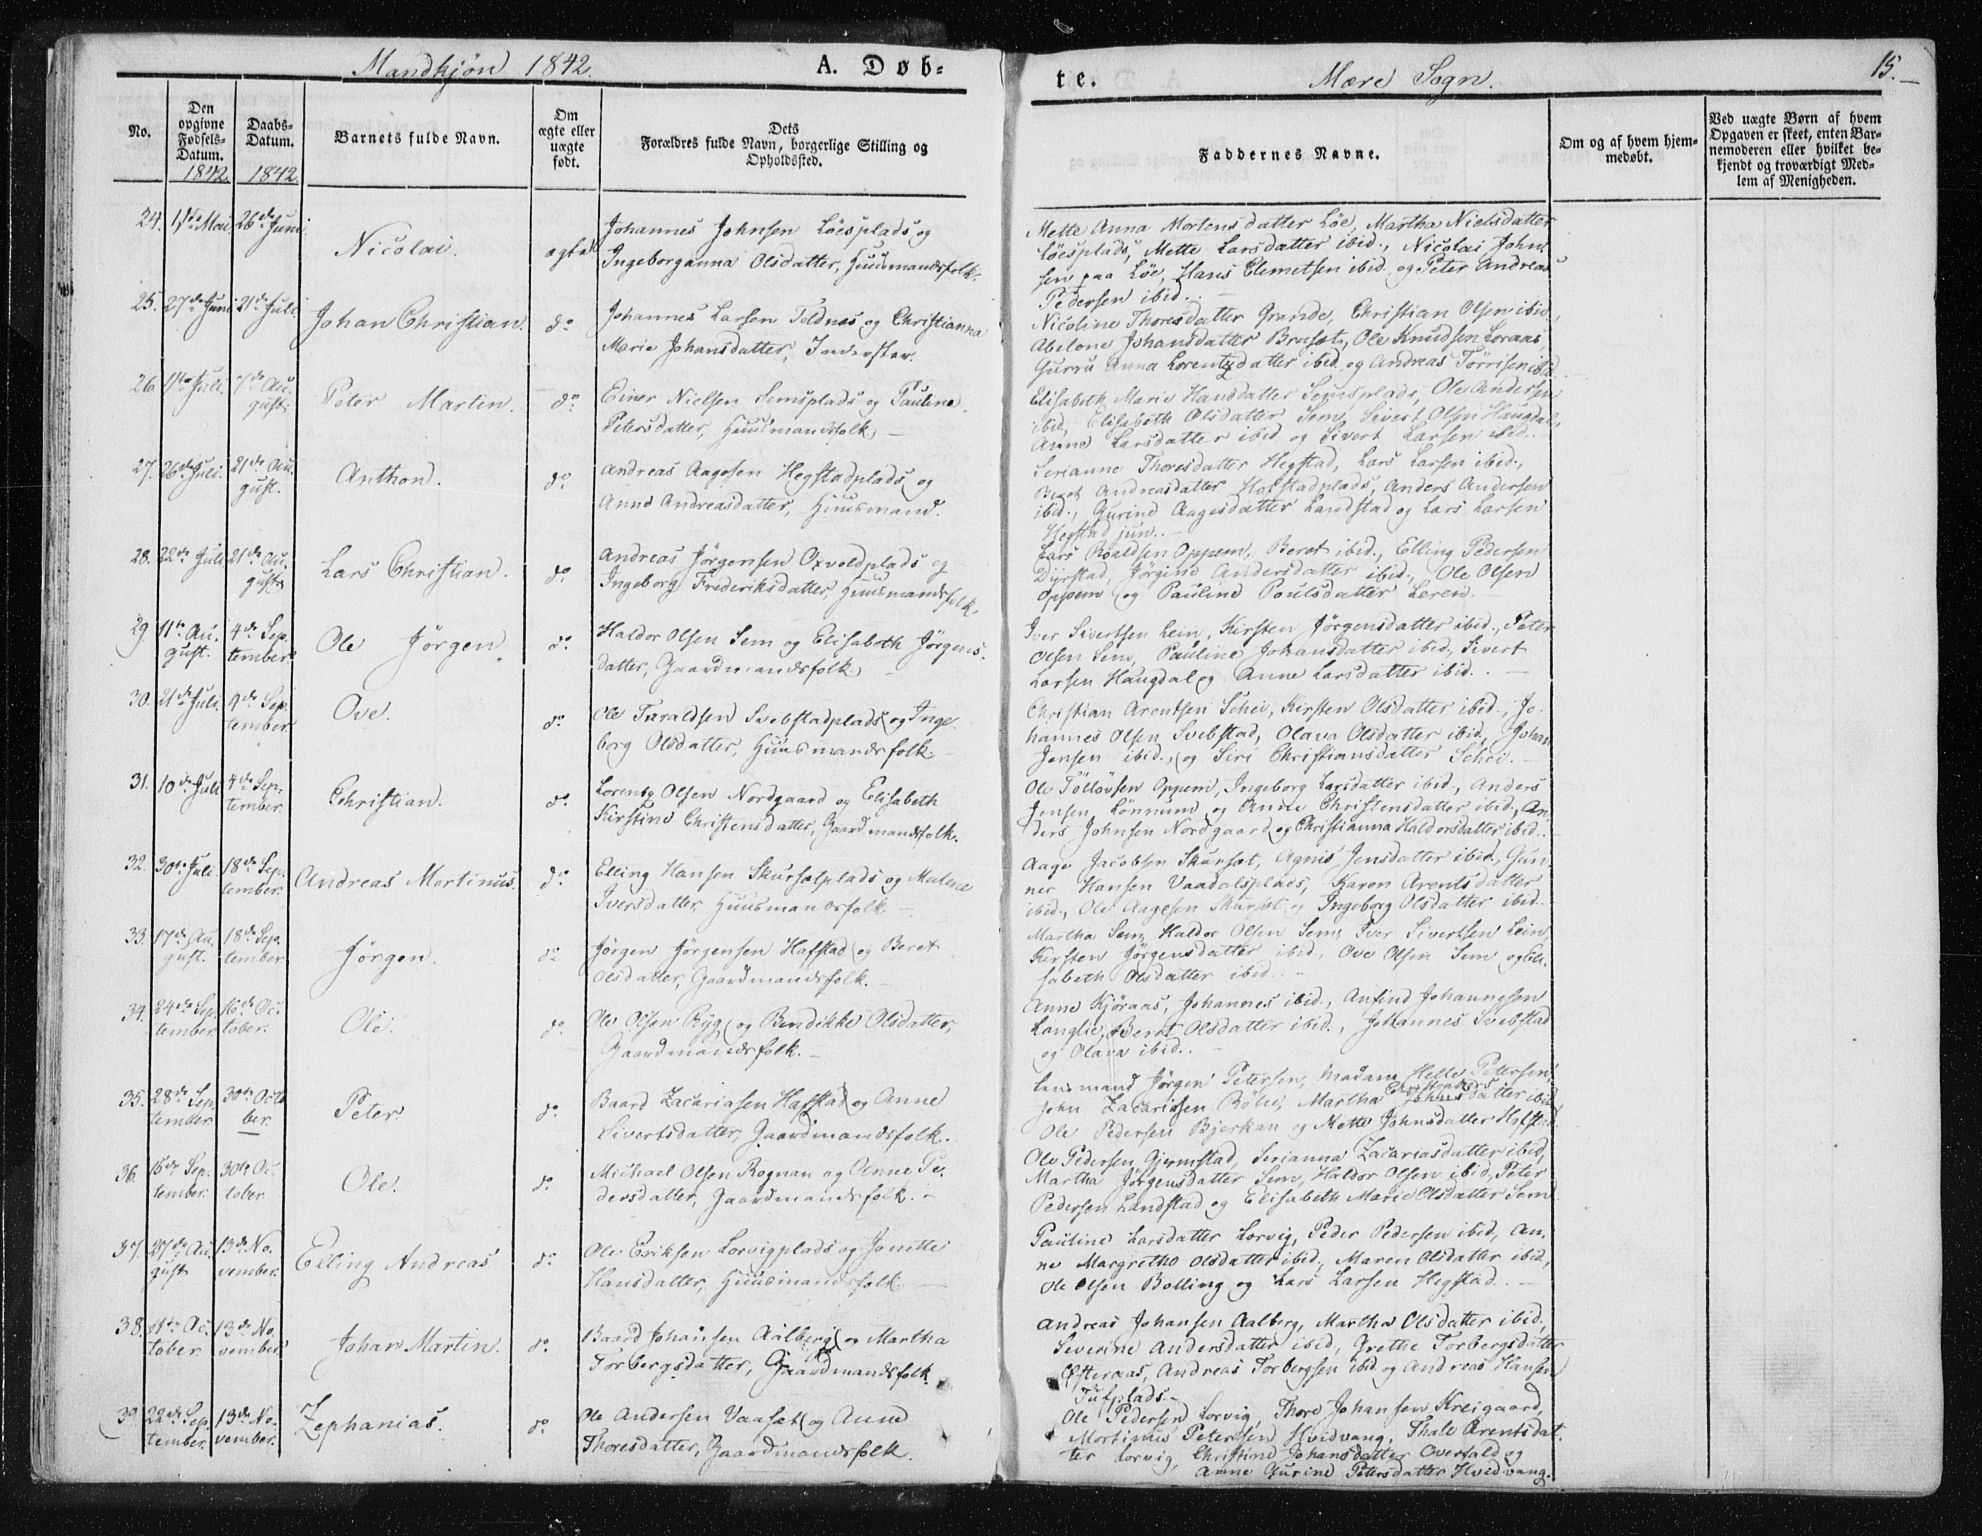 Mandkjøn 1842.
A. Døb-
te.
Mære Sogn.
15.
No.
Den opgivne Fødsels-Datum. 1842
Daabs-Datum. 1842
Barnets fulde Navn.
Om ægte eller uægte født.
Dets Forældres fulde Navn, borgerlige Stilling og Opholdssted.
Faddernes Navne.
Om og af hvem hjem-
medøbt.
Ved uægte Børn af hvem
Opgaven er skeet, enten Bar-
nemoderen eller hvilket be-
kjendt og troværdigt Med-
lem af Menigheden.
24. Mai 26de Juni Nicolai. ægte
Johannes Johnsen Löesplads og
Ingeborganna Olsdatter, Huusmandsfolk.
Mette Anna Mortensdatter Löe, Martha Nielsdatter
Löesplads, Mette Larsdatter ibid., Nicolai John-
sen paa Löe, Hans Clemetsen ibid. og Peter Andreas
Pedersen ibid.
25. 27de Juni 21de Juli Johan Christian. do
Johannes Larsen Toldnes og Christianna
Marie Johansdatter, Inderster.
Nicoline Thoresdatter Grande, Christian Olsen ibid.,
Abelone Johansdatter Brusæt, Ole Knudsen Loraas,
Gurru Anna Lorentzdatter ibid. og Andreas Törrisen ibid.
26. Juli. 7de August. Peter Martin. do
Einer Nielsen Semsplads og Pauline
Petersdatter, Huusmandsfolk.
Elisabeth Marie Hansdatter Semsplads, Ole Andersen
ibid., Elisabeth Olsdatter Sem, Sivert Olsen Haugdal,
Anne Larsdatter ibid. og Sivert Larsen ibid.
27. 26de Juli. 21de August. Anthon. do
Andreas Aagesen Hegstadplads og
Anne Andreasdatter, Huusmand.
Serianne Thoresdatter Hegstad, Lars Larsen ibid.,
Beret Andreasdatter Hofstadplads, Anders Andersen
ibid., Gurine Aagesdatter Landstad og Lars Larsen
Hegstad jun.
28. 22de Juli 21de August Lars Christian. do
Andreas Jörgensen Oxvoldplads og
Ingeborg Frederiksdatter, Huusmandsfolk.
Lars Roaldsen Oppem, Beret ibid., Elling Pedersen
Dyrstad, Jörgine Andersdatter ibid., Ole Olsen
Oppem og Pauline Poulsdatter Leren.
29 11te August. 4de September. Ole Jörgen do
Haldor Olsen Sem og Elisabeth Jörgens-
datter, Gaardmandsfolk
Iver Sivertsen Lein, Kirsten Jörgensdatter ibid., Peter
Olsen Sem, Pauline Johansdatter ibid., Sivert
Larsen Haugdal og Anne Larsdatter ibid.
30. 21de Juli. 4de September. Ove. do
Ole Taraldsen Svebstadplads og Inge-
borg Olsdatter, Huusmandsfolk.
Christian Arentsen Schei, Kirsten Olsdatter ibid., Jo-
hannes Olsen Svebstad, Olava Olsdatter ibid., Johan
Jensen ibid., og Siri Christiansdatter Schei.
31. 10de Juli 4de September. Christian. do
Lorentz Olsen Nordgaard og Elisabeth
Kirstine Christensdatter, Gaardmandsfolk.
Ole Töllövsen Oppem, Ingeborg Larsdatter ibid., Anders
Jensen Lönnum og Anne Christensdatter ibid., An-
ders Johnsen Nordgaard og Christianna Haldorsdatter ibid.
32. 30te Juli 18de September. Andreas Martinus. do
Elling Hansen Skursætplads og Malene
Iversdatter, Huusmandsfolk.
Aage Jacobsen Skursæt, Agnis Jensdatter ibid., Gun-
ner Hansen Vaadalsplads, Karen Arentsdatter
ibid., Ole Aagesen Skursæt og Ingeborg Olsdatter ibid.
33. 17de August. 18de September Jörgen. do
Jörgen Jörgensen Hafstad og Beret
Olsdatter, Gaardmandsfolk.
Martha Sem, Haldor Olsen Sem, Iver Sivertsen Lein
Kirsten Jörgensdatter ibid., Ove Olsen Sem og Eli-
sabeth Olsdatter ibid.
34. 24de September 16de October. Ole. do
Ole Olsen Ryg og Bendikke Olsdatter,
Gaardmandsfolk.
Anne Kjöraas, Johannes ibid., Anfind Johannesen
Langlie, Beret Olsdatter ibid., Johannes Svebstad
og Olava ibid.
35. 28de September 30te October. Peter do
Baard Zacariasen Hafstad og Anne
Sivertsdatter, Gaardmandsfolk.
Lensmand Jörgen Petersen, Madam Helle Petersen,
John Zacariasen Böle, Martha Christophersdatter ibid.,
Ole Pedersen Bjerkan og Mette Johnsdatter Hafstad.
36. 15de September. 30te October. Ole. do
Michael Olsen Rognan og Anne Pe-
dersdatter, Gaardmandsfolk.
Ole Pedersen Gjermstad, Serianna Zacariasdatter ibid.,
Martha Jörgensdatter Sem, Haldor Olsen ibid., Peter
Pedersen Landstad og Elisabeth Marie Olsdatter Sem
37. 27de August 13de November. Elling Andreas do
Ole Eriksen Lorvigplads og Jonette
Hansdatter, Huusmandsfolk
Pauline Larsdatter Lorvig, Peder Pedersen ibid., An-
ne Margrethe Olsdatter ibid., Maren Olsdatter ibid.,
Ole Olsen Bolling og Lars Larsen Hegstad.
38. 11te October. 13de November. Johan Martin. do
Baard Johansen Aalberg og Martha
Torbergsdatter, Gaardmandsfolk.
Andreas Johansen Aalberg, Martha Olsdatter ibid.,
Severine Andersdatter ibid., Grethe Torbergsdatter
Österaas, Andreas Torbergsen ibid. og Andreas Hansen
Tufplads.
39. 22de September. 13de November. Zephanias. do
Ole Andersen Vaasæt og Anne
Thoresdatter, Gaardmandsfolk.
Ole Pedersen Lorvig, Thore Johansen Kreigaard,
Mortinus Petersen Hvidvang, Thale Arentsdat-
ter Lorvig, Christine Johansdatter Overfald og
Anne Gurine Petersdatter Hvidvang.